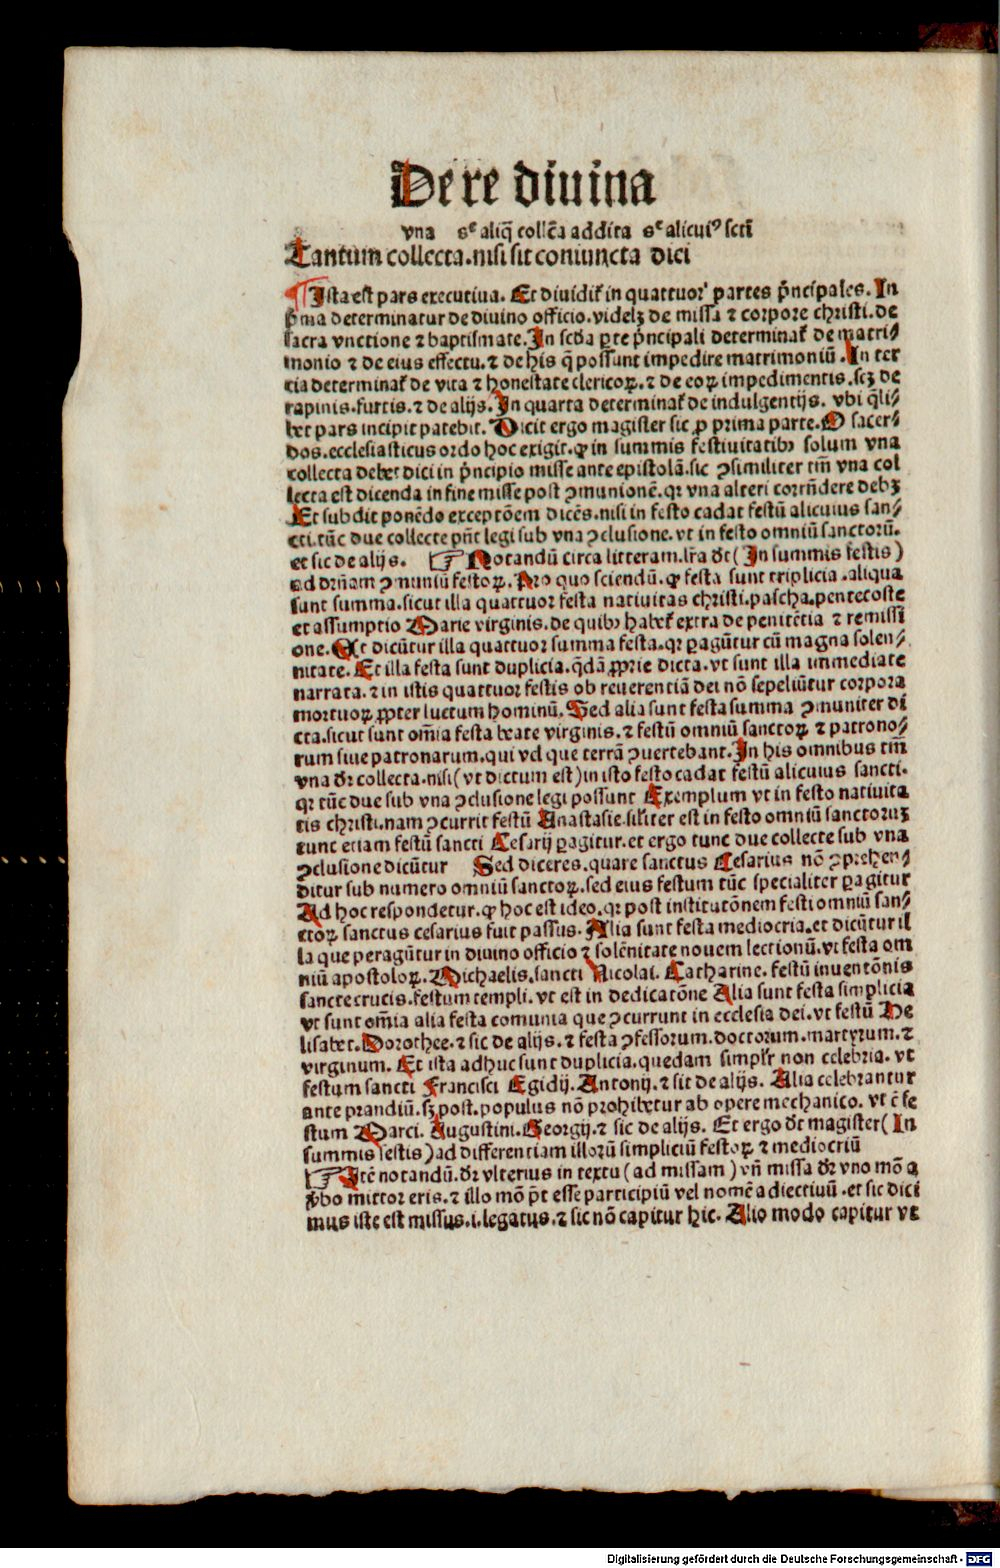 De re diuina
vna sͨ aliq̄ collc̄a addita sͨ alicuiꝰ scti
Tantum collecta.nisi sit coniuncta dici
¶ Ista est pars executiua. Et diuidit̄ in quattuor partes p̄ncipales. In
p̄ma determinatur de diuino officio.videlꝫ de missa ⁊ corpore christi.de
sacra vnctione ⁊ baptismate. In scd̄a ꝑte p̄ncipali determinat̄ de matri⸗
monio ⁊ de eius effectu.⁊ de his q̄ possunt impedire matrimoniū. In ter
tia determinat̄ de vita ⁊ honestate clericoꝝ.⁊ de eoꝝ impedimentis.scꝫ de
rapinis.furtis.⁊ de alijs. In quarta determinat̄ de indulgentijs. vbi q̄li⸗
bet pars incipit patebit. Dicit ergo magister sic ꝓ prima parte. O sacer⸗
dos.ecclesiasticus ordo hoc exigit.ꝙ in summis festiuitatibꝰ solum vna
collecta debet dici in p̄ncipio misse ante epistolā.sic ꝯsimiliter tm̄ vna col
lecta est dicenda in fine misse post ꝯmunionē.qꝛ vna alteri corrn̄dere debꝫ
Et subdit ponēdo exceptōem dicēs.nisi in festo cadat festū alicuius san⸗
cti.tūc due collecte pn̄t legi sub vna ꝯclusione.vt in festo omniū sanctorū.
et sic de alijs. ☞ Notandū circa litteram.lr̄a dt̄ (In summis festis)
ad drn̄am ꝯmuniū festoꝝ. Pro quo sciendū.ꝙ festa sunt triplicia.aliqua
sunt summa.sicut illa quattuor festa natiuitas christi.pascha.pentecoste
et assumptio Marie virginis.de quibꝰ habet̄ extra de penitētia ⁊ remissi
one. Et dicūtur illa quattuor summa festa.qꝛ ꝑagūtur cū magna solen⸗
nitate. Et illa festa sunt duplicia.q̄dā ꝓprie dicta.vt sunt illa immediate
narrata.⁊ in istis quattuor festis ob reuerentiā dei nō sepeliūtur corpora
mortuoꝝ ꝓpter luctum hominū. Sed alia sunt festa summa ꝯmuniter di
cta.sicut sunt om̄ia festa beate virginis.⁊ festū omniū sanctoꝝ ⁊ patrono⸗
rum siue patronarum.qui vel que terrā ꝯuertebant. In his omnibus tm̄
vna dr̄ collecta.nisi (vt dictum est) in isto festo cadat festū alicuius sancti.
qꝛ tūc due sub vna ꝯclusione legi possunt Exemplum vt in festo natiuita
tis christi.nam ꝯcurrit festū Anastasie.silr̄iter est in festo omniū sanctoruꝫ
tunc etiam festū sancti Cesarij ꝑagitur.et ergo tunc due collecte sub vna
ꝯclusione dicūtur Sed diceres.quare sanctus Cesarius nō ꝯprehen⸗
ditur sub numero omniū sanctoꝝ.sed eius festum tūc specialiter ꝑagitur
Ad hoc respondetur.ꝙ hoc est ideo.qꝛ post institutōnem festi omniū san⸗
ctoꝝ sanctus cesarius fuit passus. Alia sunt festa mediocria.et dicūtur il
la que peragūtur in diuino officio ⁊ solēnitate nouem lectionū.vt festa om
niū apostoloꝝ. Michaelis.sancti Nicolai. Catharine. festū inuentōnis
sancte crucis.festum templi. vt est in dedicatōne Alia sunt festa simplicia
vt sunt om̄ia alia festa comunia que ꝯcurrunt in ecclesia dei.vt festū He
lisabet. Dorothee.⁊ sic de alijs.⁊ festa ꝯfessorum.doctorum.martyrum.⁊
virginum. Et ista adhuc sunt duplicia.quedam simplr̄ non celebria. vt
festum sancti Francisci Egidij. Antonij.⁊ sit de alijs. Alia celebrantur
ante prandiū.sꝫ post.populus nō prohibetur ab opere mechanico. vt ē fe
stum Marci. Augustini. Georgij.⁊ sic de alijs. Et ergo dt̄ magister (In
summis festis) ad differentiam illorū simpliciū festoꝝ ⁊ mediocriū
☞ Itē notandū.dr̄ vlterius in textu (ad missam) vn̄ missa dr̄ vno mō a
ꝟbo mittor eris.⁊ illo mō p̄t esse participiū vel nomē adiectiuū.et sic dici
mus iste est missus.i.legatus.⁊ sic nō capitur hic. Alio modo capitur vt
Digitalisierung gefördert durch die Deutsche Forschungsgemeinschaft - DFG